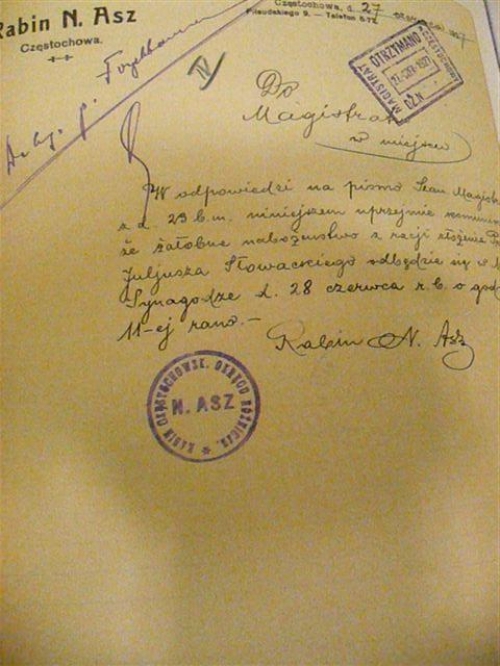 Rabin N. Asz
Częstochowa.
Częstochowa, d. 27 czerwca
Piłsudskiego 9. — Telefon
MAGISTRAT CZĘSTOCHOWA
OTRZYMANO
27. CZE. 1927
DZN.
IV
Do
Magistratu
w miejscu
W odpowiedzi na pismo Magis
z d. 23 b.m. niniejszem uprzejmie komuni
że żałobne nabożeństwo z racji złożenia
Juljusza Słowackiego odbędzie się w
Synagodze d. 28 czerwca r.b. o god
11-ej rano.—
Rabin N. Asz
RABIN CZĘSTOCHOWSK. OKRĘGU BÓŻNICZ.
N. ASZ